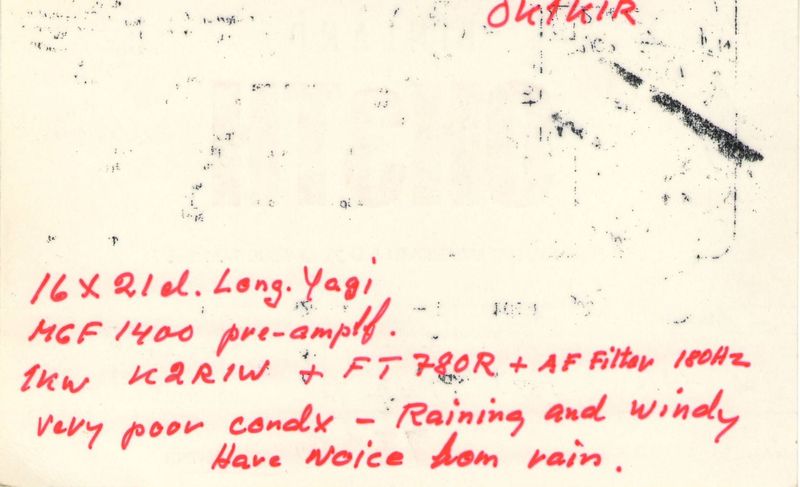 OK1KIR
16 X 21 el. Long. Yagi
MGF 1400 pre-amplf.
1KW K2RIW + FT 780R + AF Filter 180Hz
very poor condx - Raining and windy
Have Noice from rain.